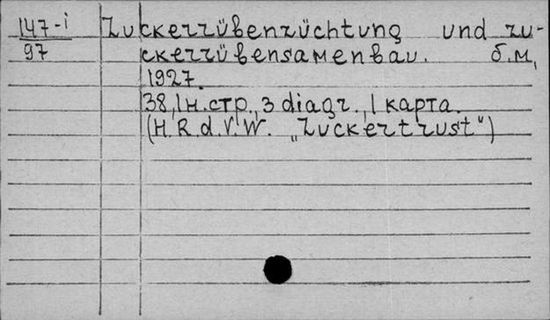 147-i Zuckerrübenzüchtung und zu-
97 ckerrübensamenbau. б.м,
1927.
38, 1 н.стр, 3 diagr., 1 карта.
(H.R.d.V.W. „Zuckertrust")